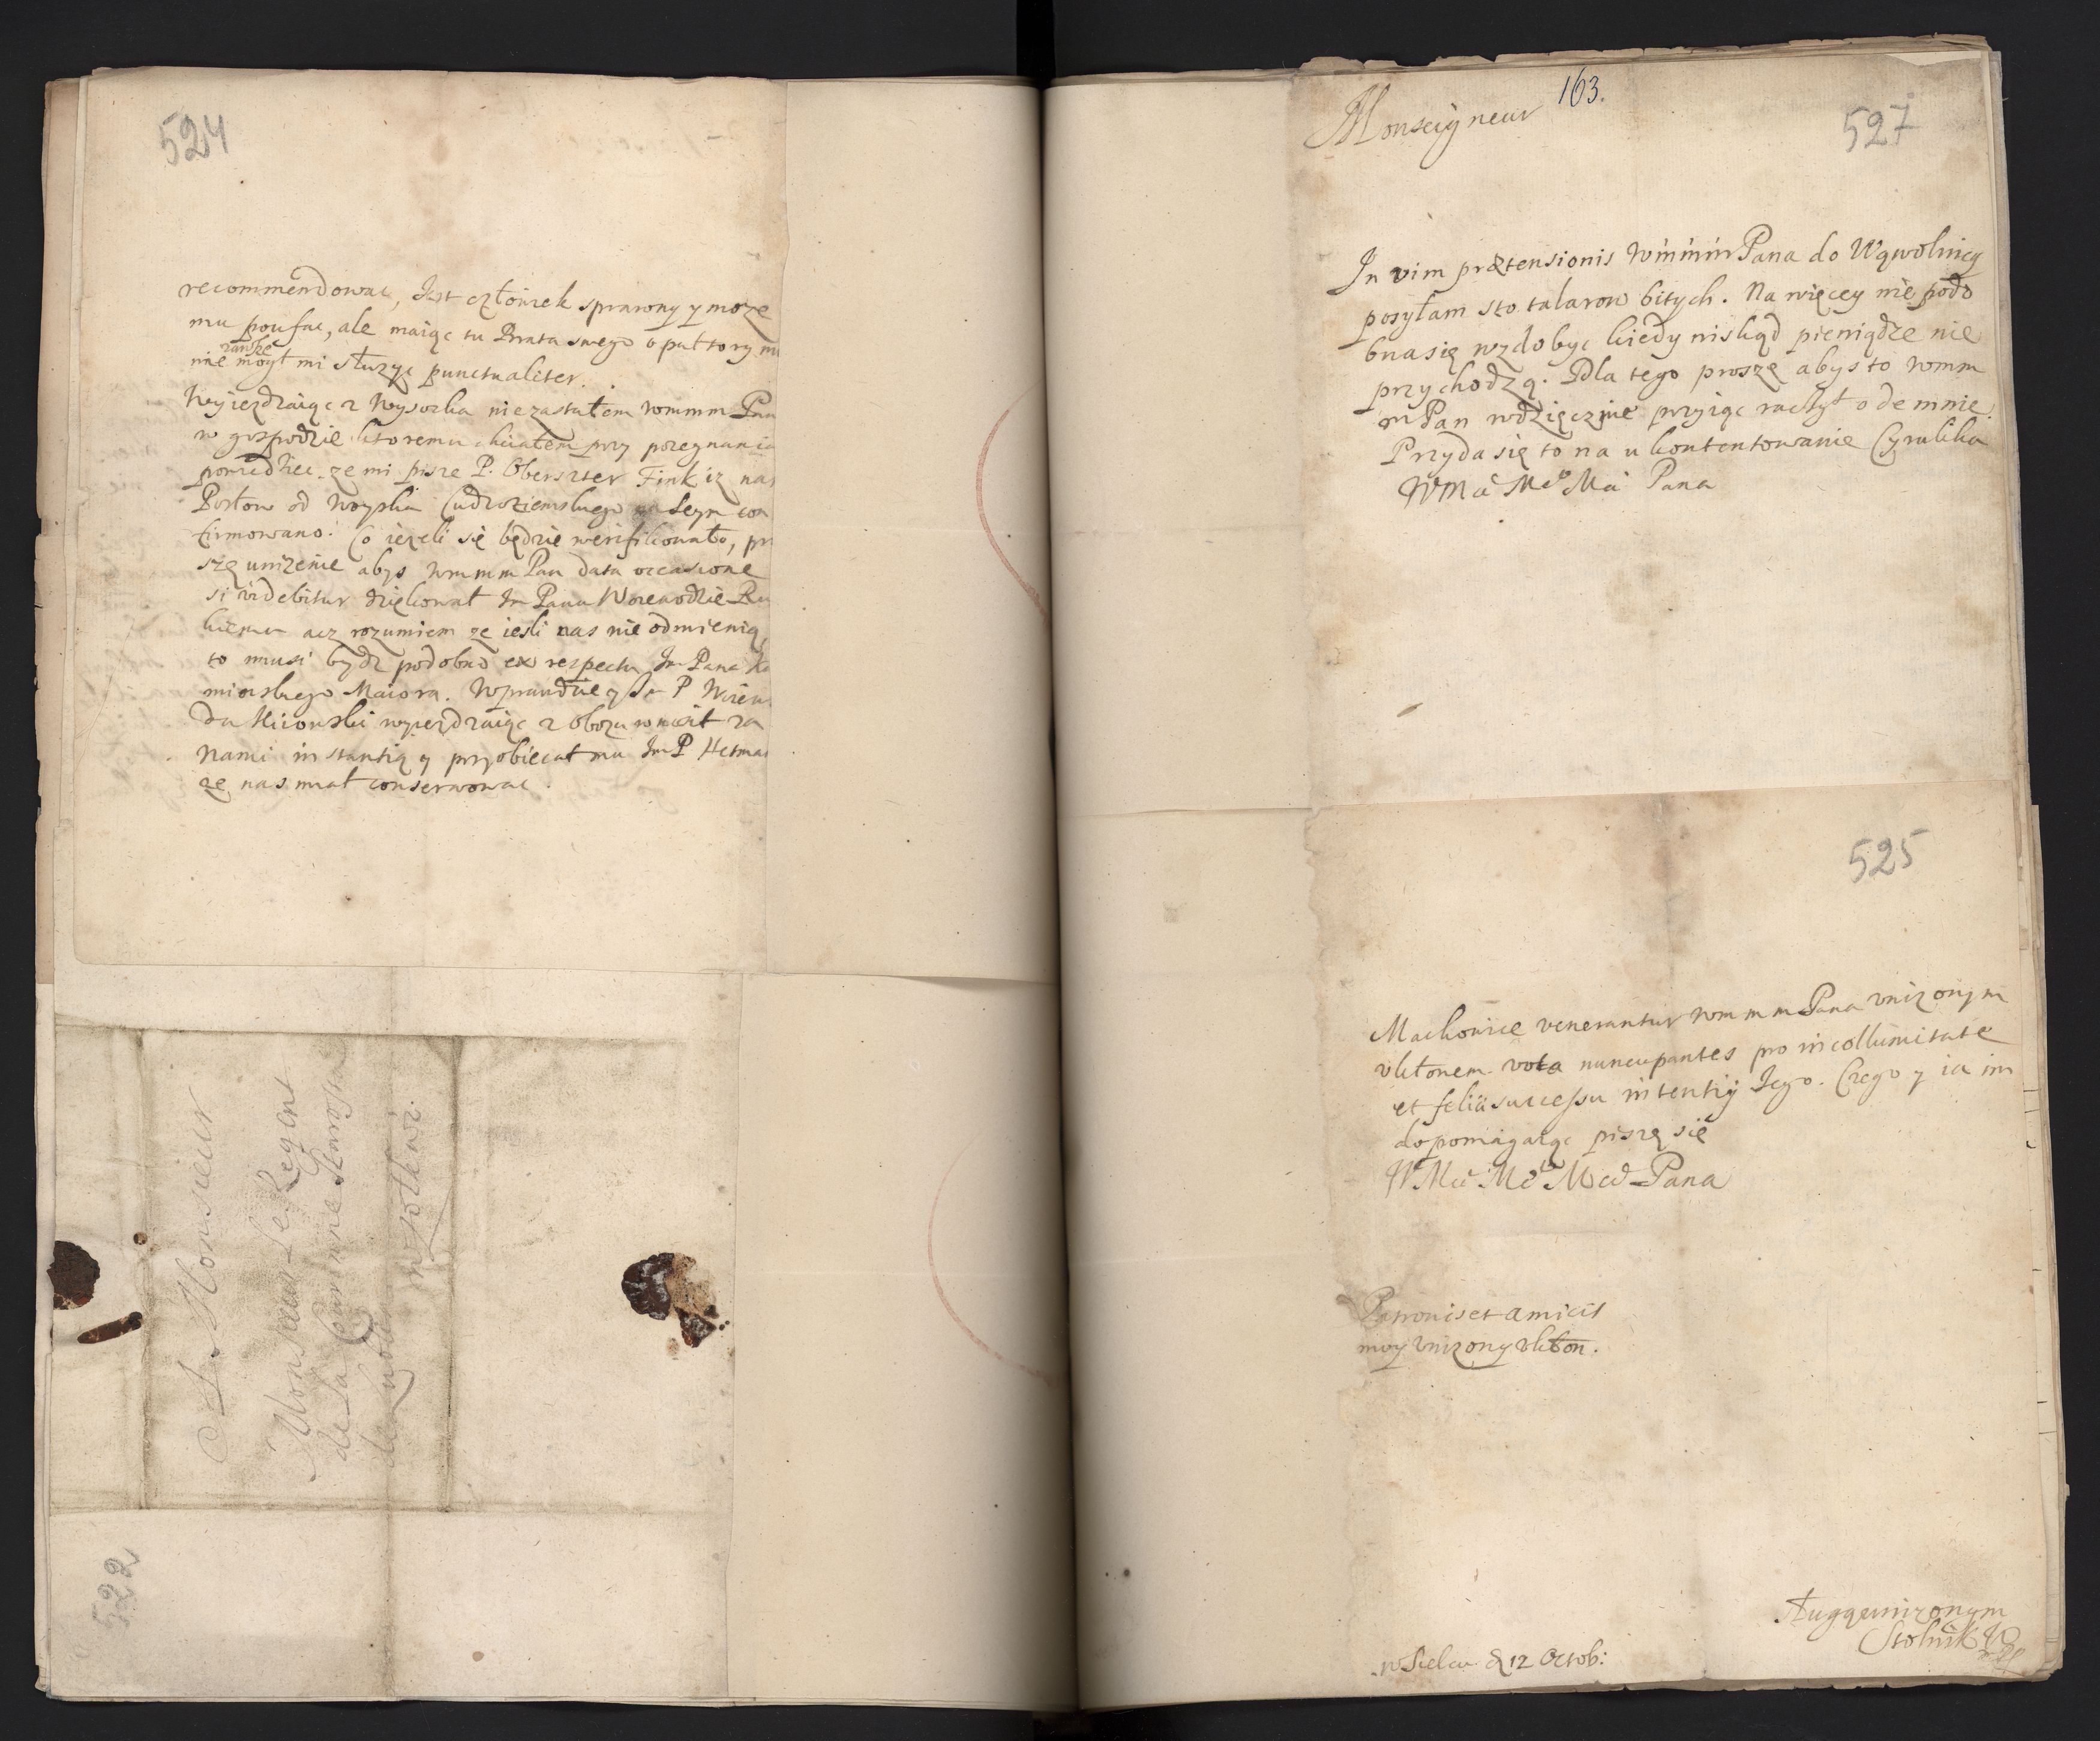 524
recommendowac, Jest człowiek sprawny y moze
mu poufac, ale maiąc tu Brata swego o pułtory mi
zawsze
nie mogł mi słuzyc punctualiter.
Wyiezdzaiąc z Wysocka nie zastałem wmmm Pana
w gospodzie ktoremu chciałem przy pozegnaniu
powiedziec, ze mi pisze P. Oberszter Fink iz nas
Posłow od Woyska Cudzoziemskiego na Seym con
firmowano. Co iezeli się będzie werifikowało, pro
szę unizenie abys wmmm Pan data occasione
si videbitur dziękował Jm Panu Woiewodzie Ru
skiemu acz rozumiem ze iesli nas nie odmienią,
to musi bydz podobno ex respectu Jm Pana Ka
mionskiego Maiora. Wprawdzie y Jm P Woiewo
da Kiiowski wyiezdzaiąc z Obozu wnosił za
nami instantią y przyobiecał mu Jm P Hetman
ze nas miał conserwowac.
A Monsieur
Monsieur Le Regent
de la Couronne Staroste
w Zołkwi.
522
163.
Monseigneur
527
In vim prætensionis WmmmPana do Wąwolnicy
posyłam sto talarow bitych. Na więcey nie podo
bna się wzdobyc kiedy niskąd pieniądze nie
przychodzą. Dla tego proszę abys to wmm
m Pan wdzięcznie przyiąc raczył odemnie.
Przyda się to na ukontentowanie Cyrulika
WMci Mego Mci Pana
525
Machowice venerantur wmmmPana vnizonym
vkłonem vota nuncupantes pro incollumitate
et felici successu intentiy Jego. Czego y ia im
dopomagaiąc piszę się
WMci Mego Mci Pana
Patronis et amicis
moy vnizony vkłon.
w Sielcu d 12 Octob:
sługą vnizonym
Stolnik